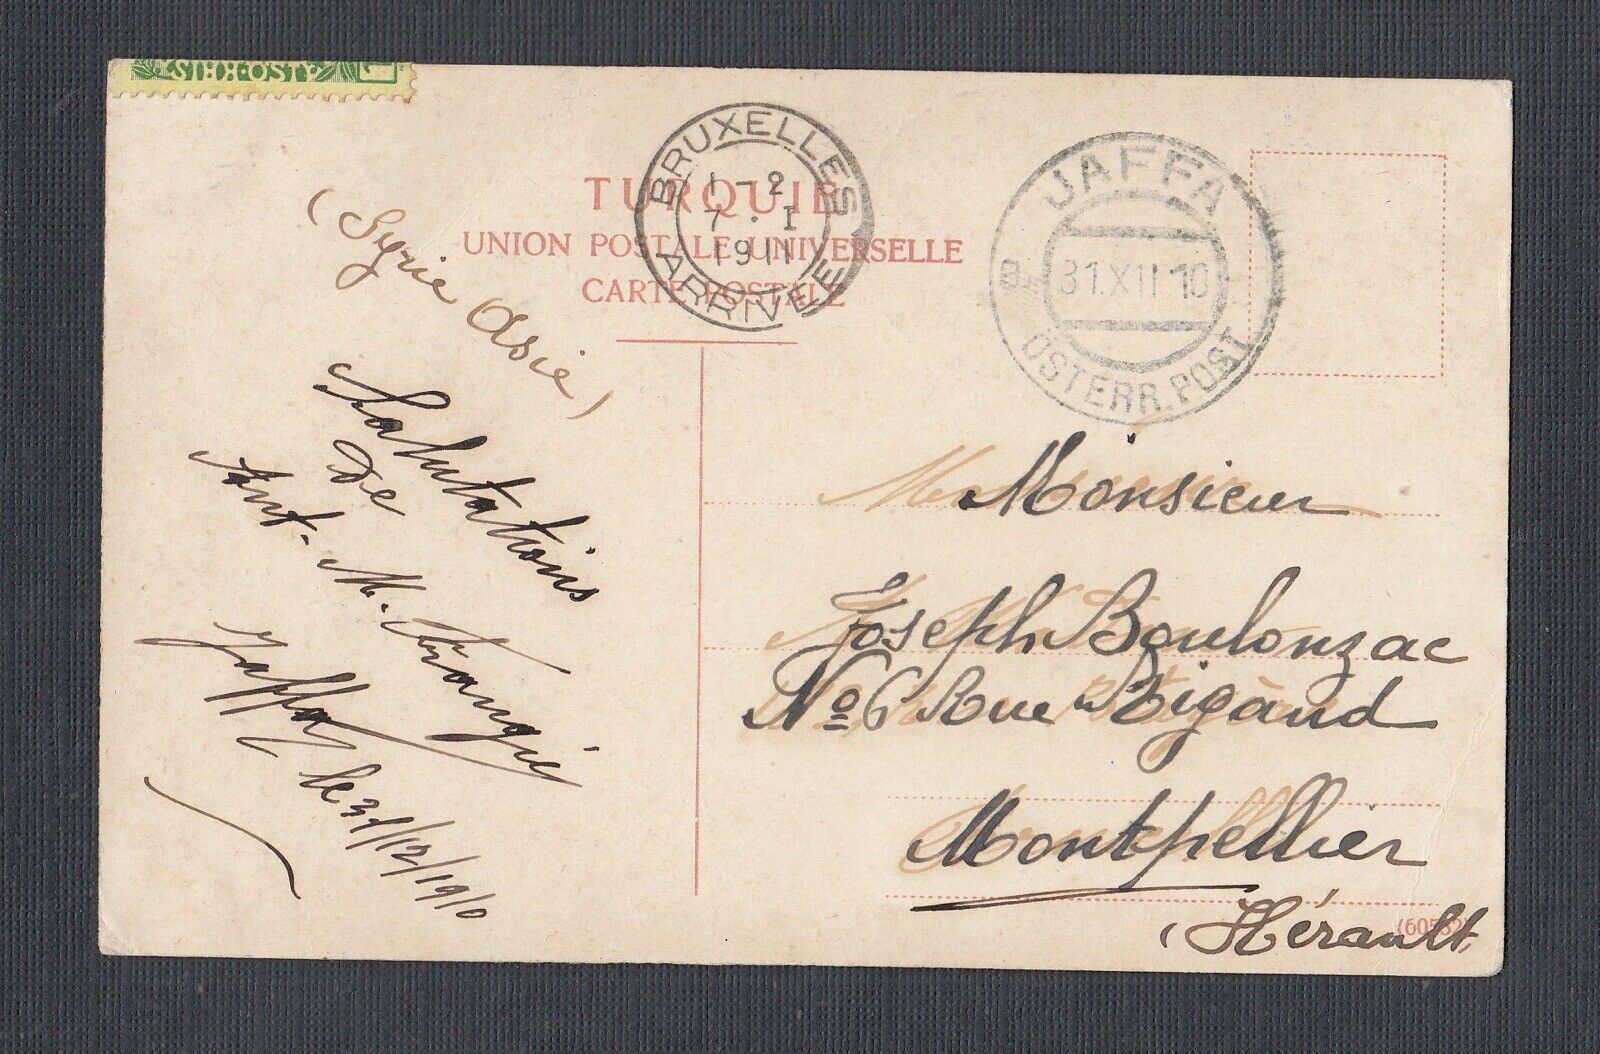 BRUXELLES
1-2
7 . I
1911
ARRIVÉE
JAFFA
31.XII 10
a
ÖSTERR. POST
TURQUIE
UNION POSTALE UNIVERSELLE
CARTE POSTALE
(Syrie Asie)
Salutations
De
Ant. M. Frangié
Jaffa le 31/12/1910
Monsieur
Joseph Boulonzac
No 6 Rue Rigaud
Montpellier
(Hérault